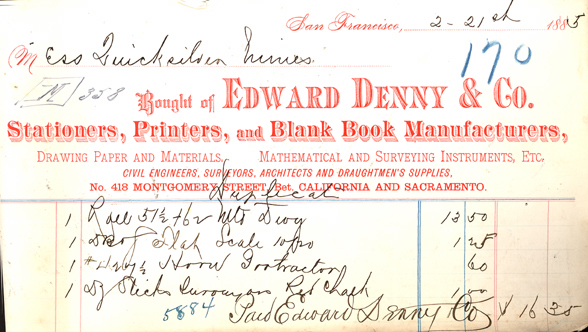 San Francisco, 2-21st 1885
Mess Quicksilver Mines
170
M 358
Bought of EDWARD DENNY & CO.
Stationers, Printers, and Blank Book Manufacturers,
DRAWING PAPER AND MATERIALS, MATHEMATICAL AND SURVEYING INSTRUMENTS, ETC.
CIVIL ENGINEERS, SURVEYORS, ARCHITECTS AND DRAUGHTMEN'S SUPPLIES,
No. 418 MONTGOMERY STREET, Bet. CALIFORNIA AND SACRAMENTO.
Duplicate
1 Roll 51½ + 62 Mtd 13 50
1 Flat Scale 1 25
1 # Horn Protractor 60
1 Dz Sticks Surveyors Red Chalk 1 00
5884 Paid Edward Denny & Co $ 16 35